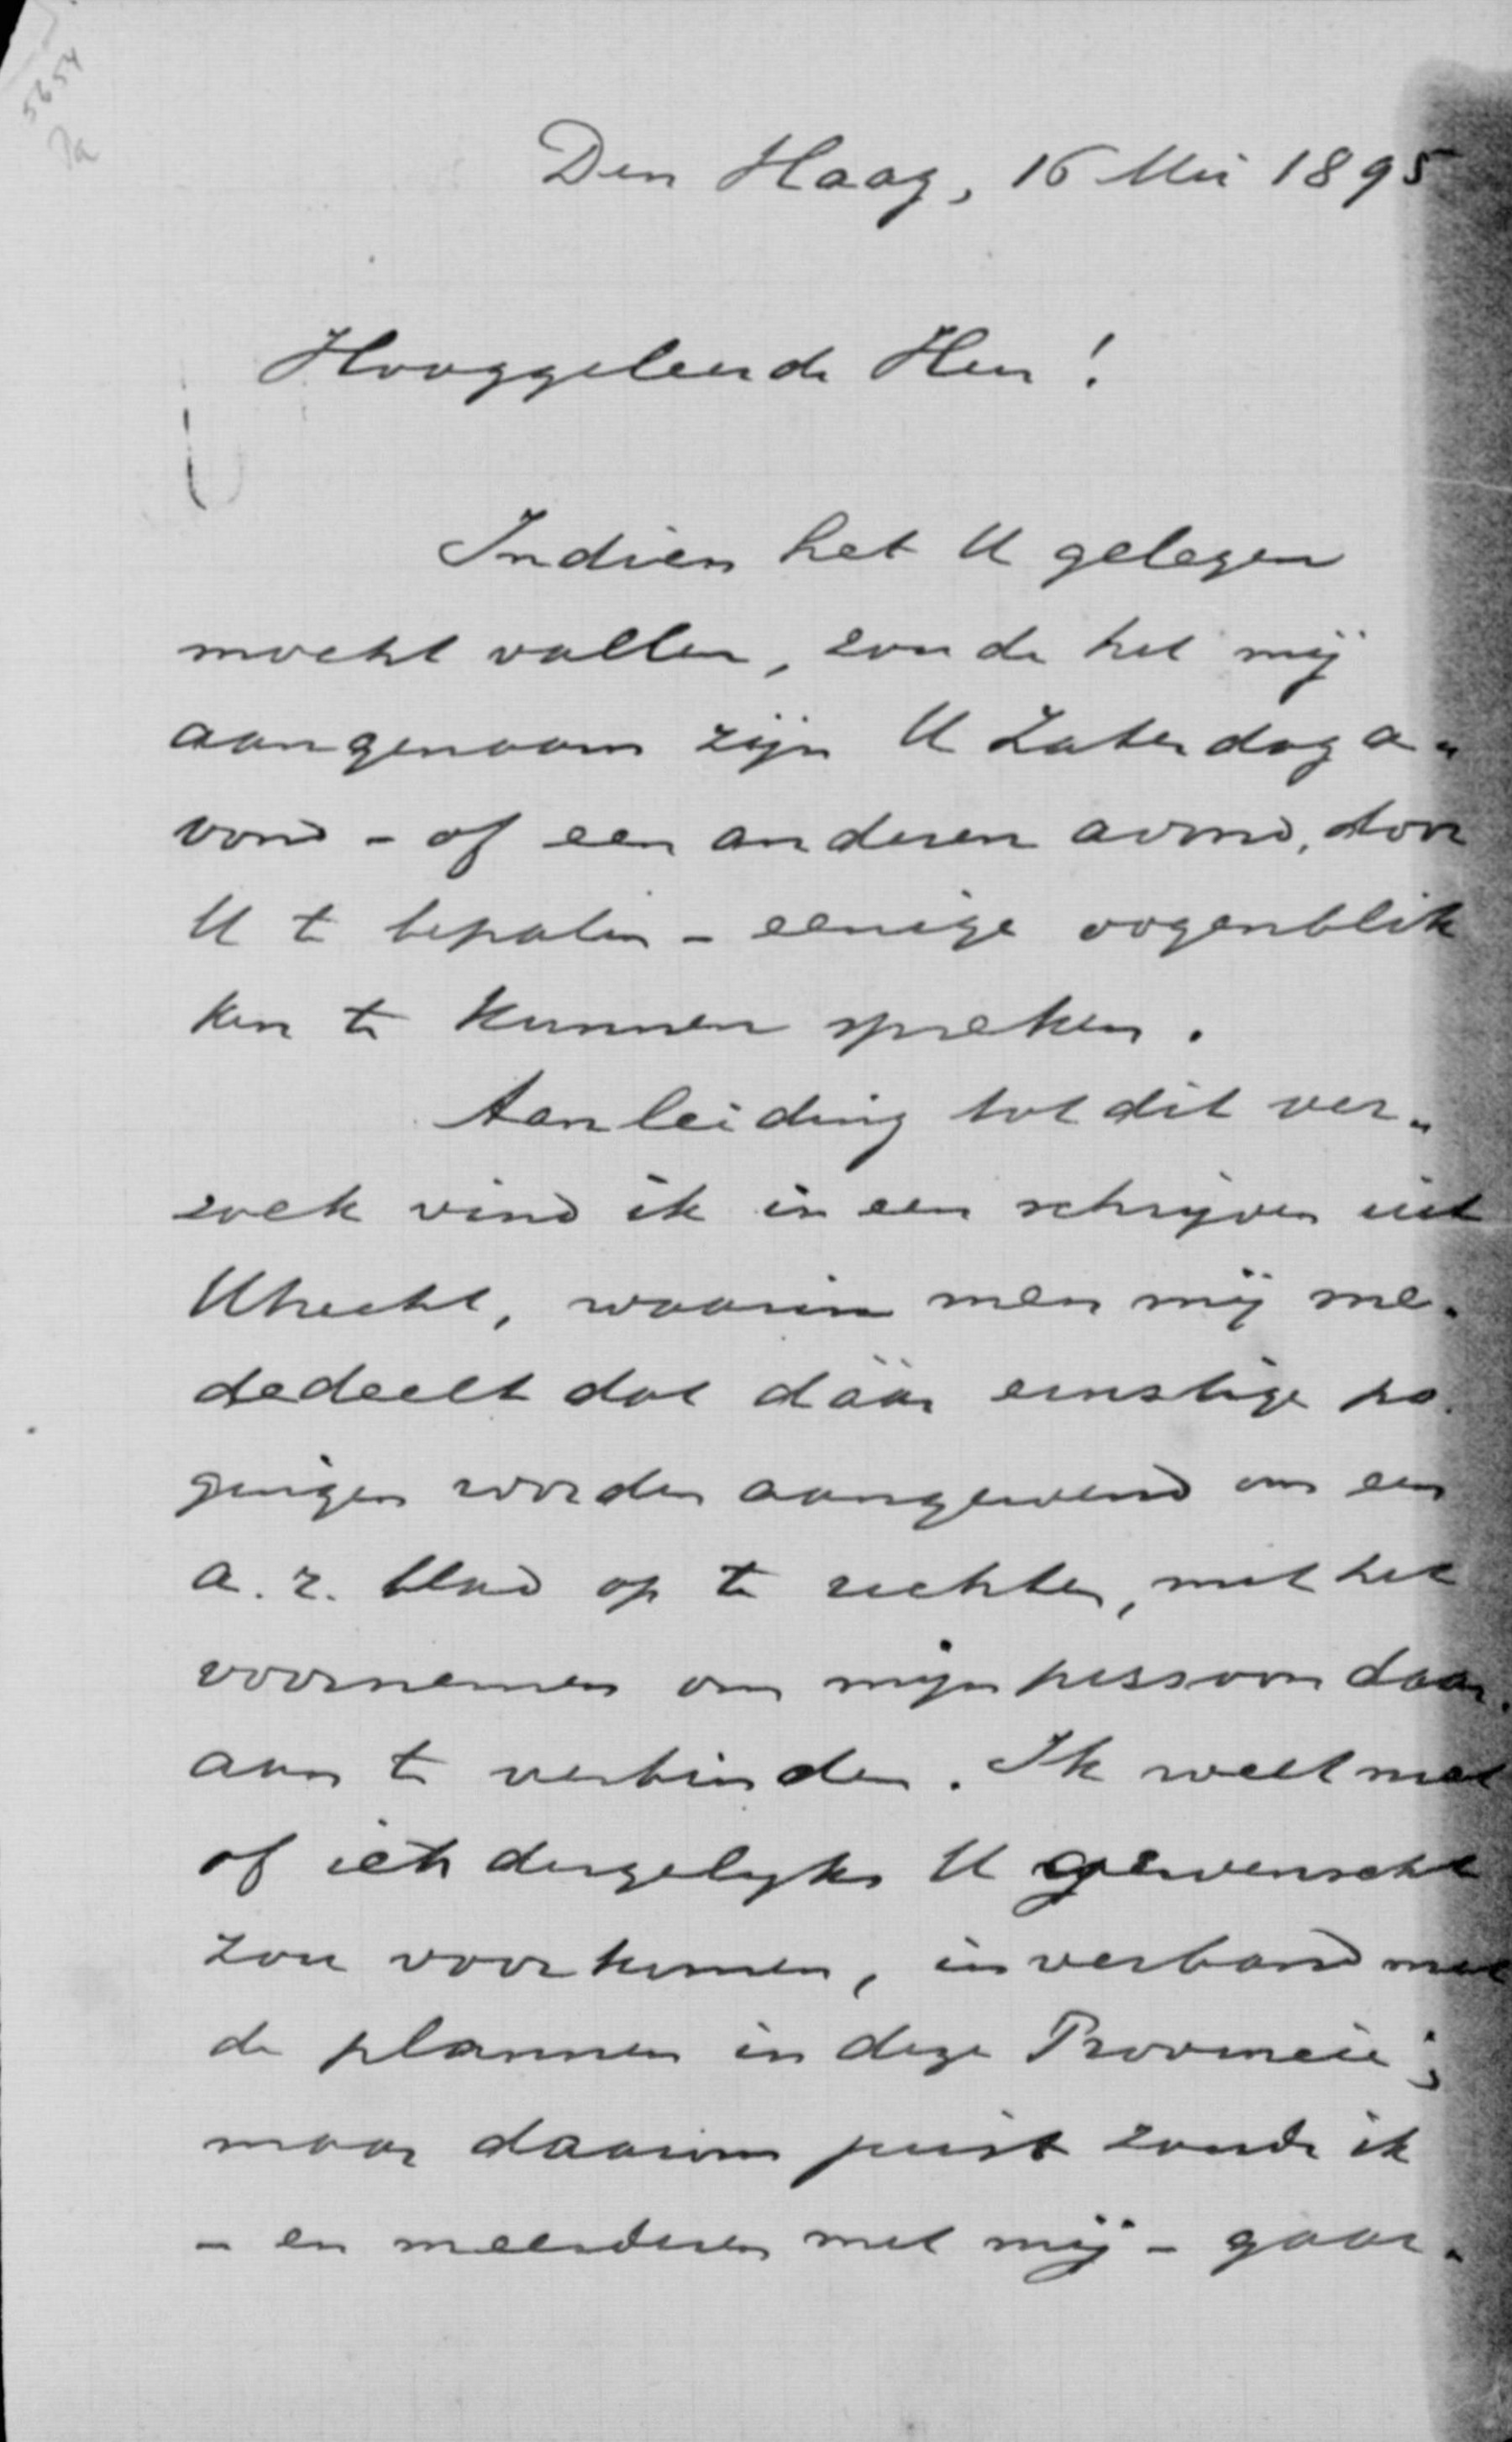 5654
Den Haag, 16 Mei 1895
Hooggeleerde Heer!
Indien het U gelegen
mocht vallen, zoude het mij
aangenaam zijn U Zaterdag a-
vond - of een anderen avond, door
U te bepalen - eenige oogenblik
ken te kunnen spreken.
Aanleiding tot dit ver-
zoek vind ik in een schrijven uit
Utrecht, waarin men mij me-
dedeelt dat dáár ernstige po-
gingen worden aangewend om een
a. r. blad op te richten, met het
voornemen om mijn persoon daar-
aan te verbinden. Ik weet niet
of iets dergelijks U gewenscht
zou voorkomen, in verband met
de plannen in deze Provincie;
maar daarom juist zoude ik
- en meerderen met mij - gaar-